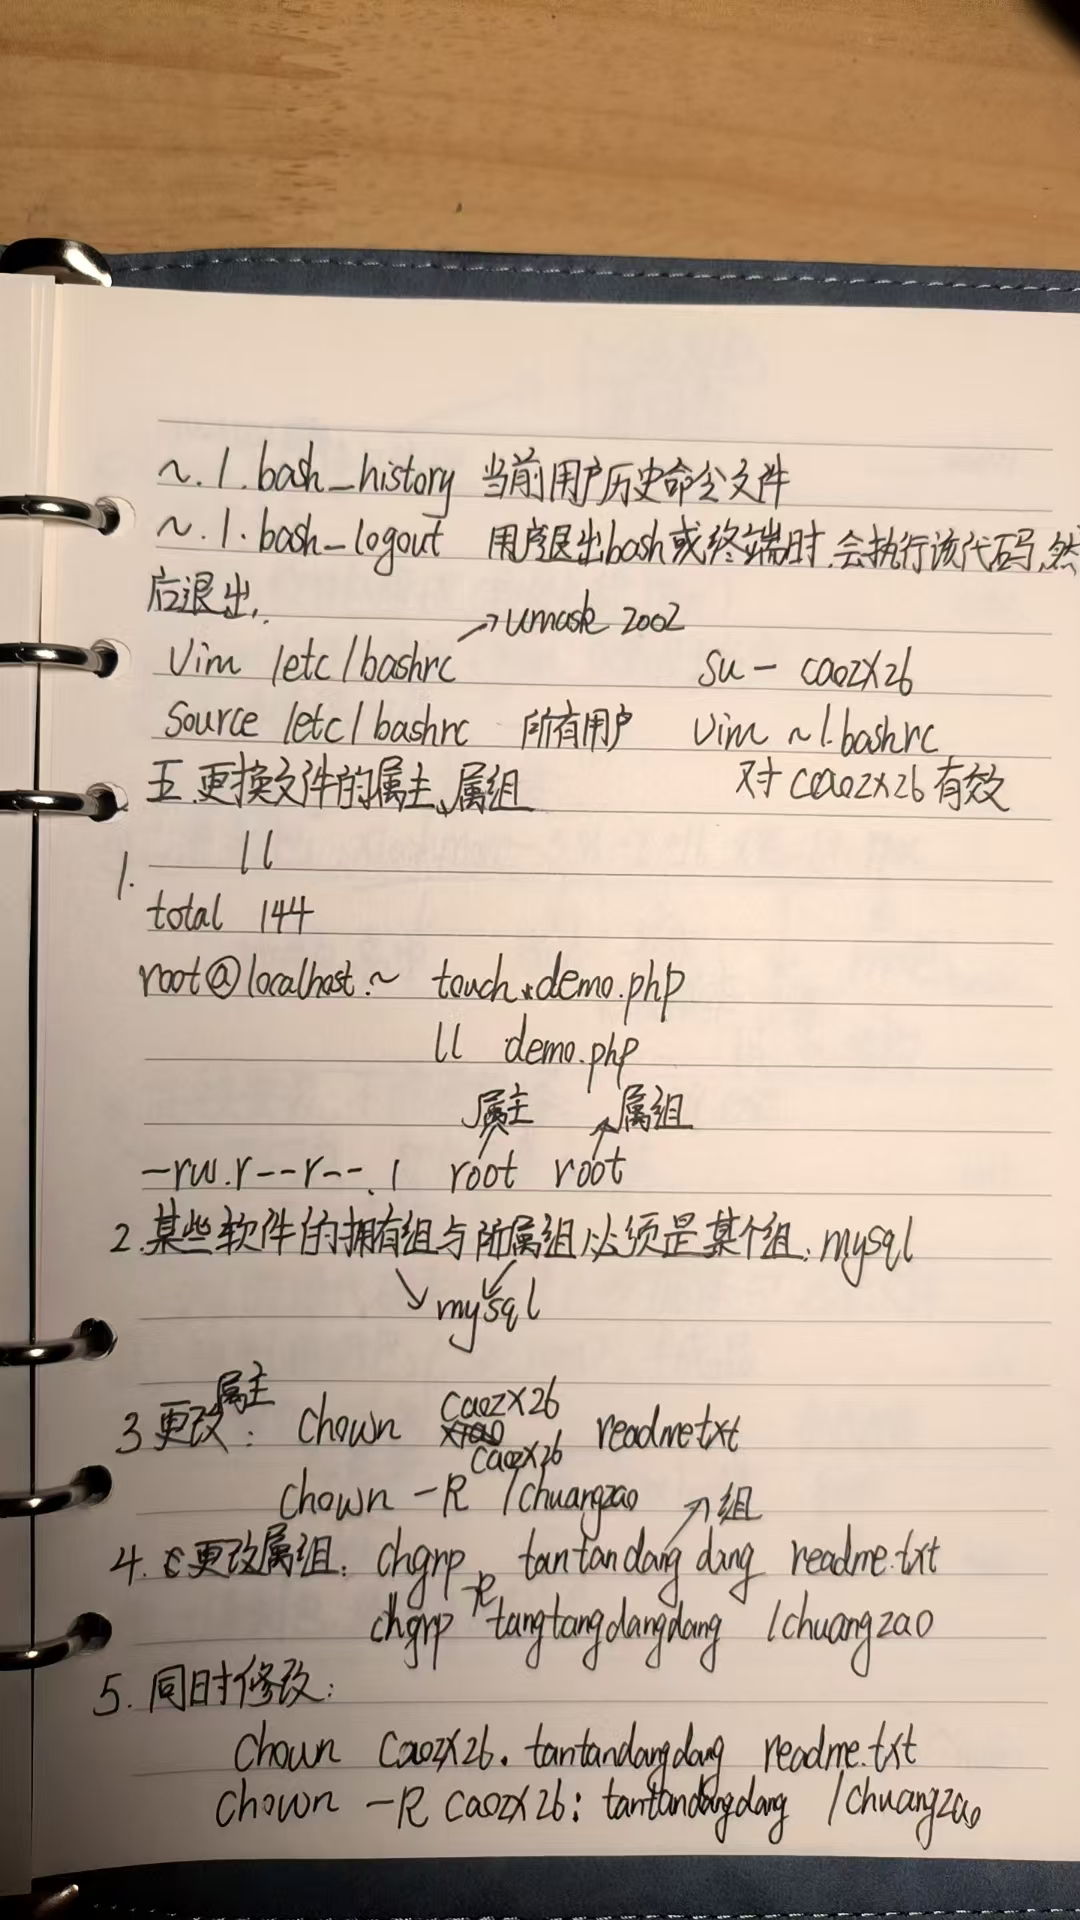 ~./.bash_history 当前用户历史命令文件
~./.bash_logout 用户退出bash或终端时.会执行该代码,然
后退出.
→umask 2002
Vim /etc/bashrc su - caozx26
Source /etc/bashrc 所有用户 Vim ~/.bashrc
五.更换文件的属主、属组 对caozx26有效
1. ll
total 144
root@localhost:~ touch demo.php
ll demo.php
属主 属组
-rw.r--r--. 1 root root
2.某些软件的拥有组与附属组必须是某个组:mysql
mysql
3更改属主: Chown caozx26 readmetxt
Chown -R caozx26 /chuangzao
→组
4.更改属组: chgrp tantandangdang readme.txt
chgrp -R tangtangdangdang /chuangzao
5.同时修改:
Chown Caozx26. tantandangdang readme.txt
Chown -R Caozx26: tantandangdang /chuangzao